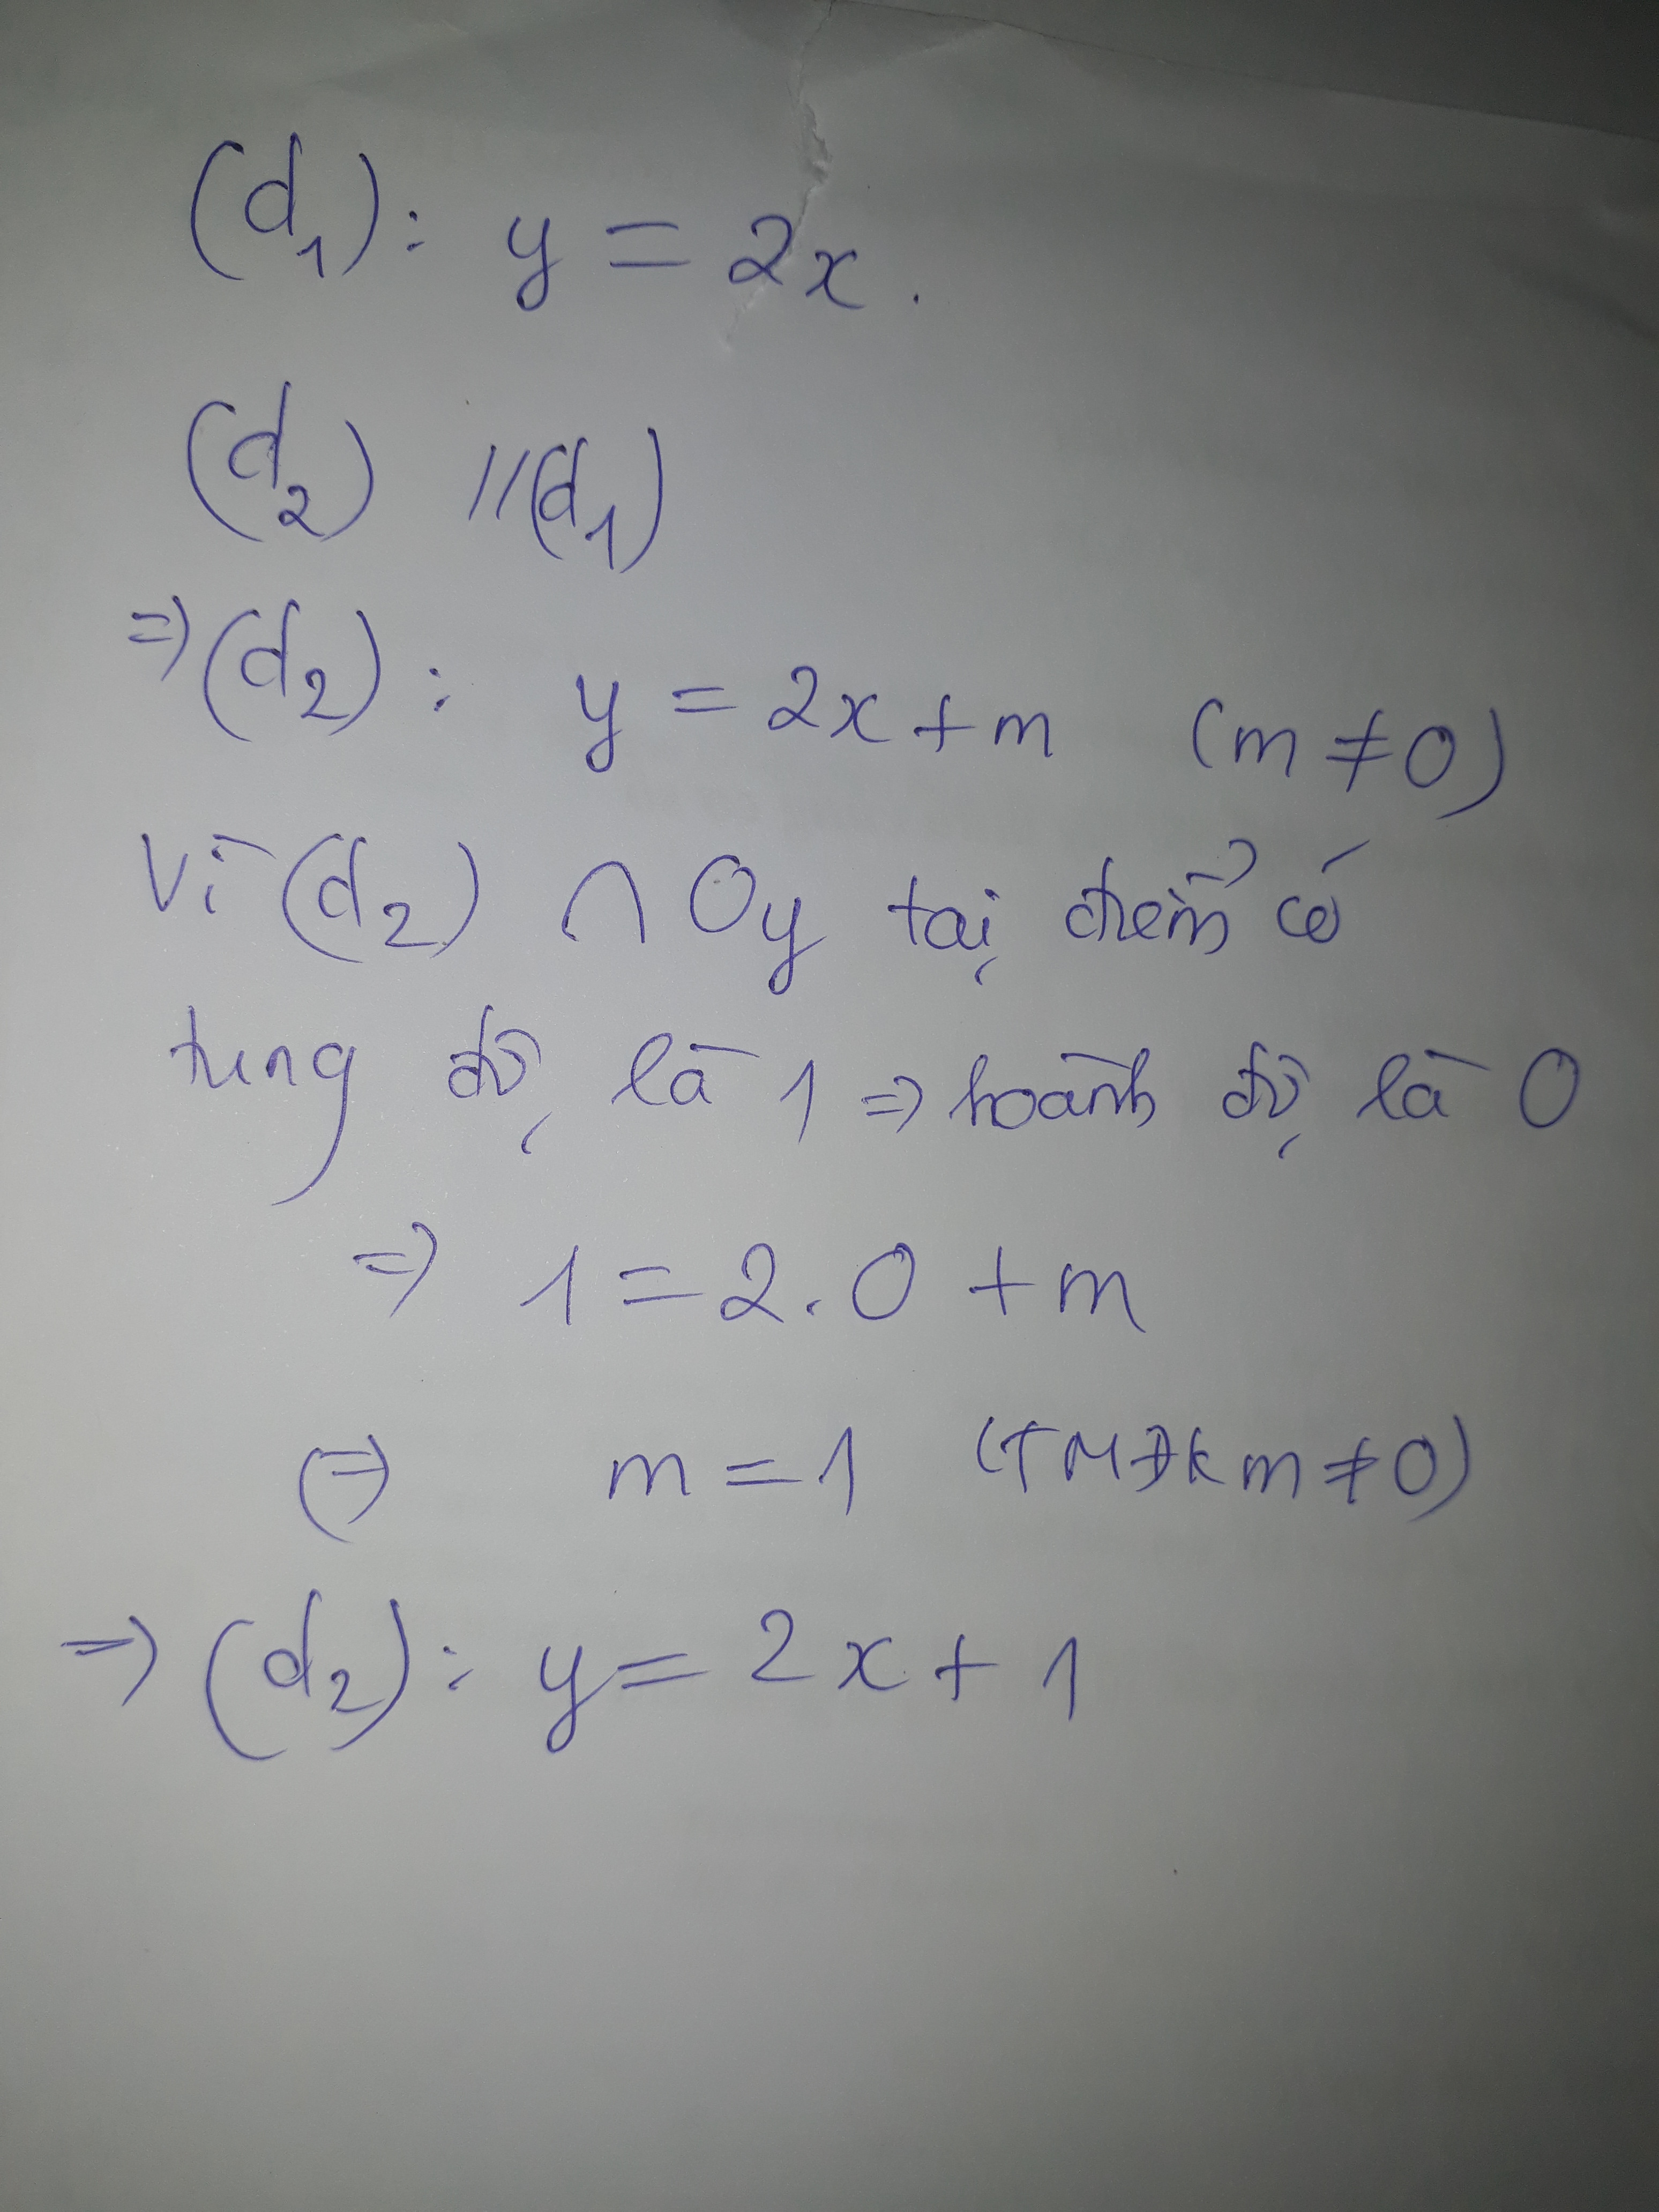 (d₁): y = 2x.
(d₂) //(d₁)
=> (d₂): y = 2x + m (m ≠ 0)
Vì (d₂) ∩ Oy tại điểm có
tung độ là 1 => hoành độ là 0
=> 1 = 2.0 + m
(=) m = 1 (TMĐK m ≠ 0)
=> (d₂): y = 2x + 1